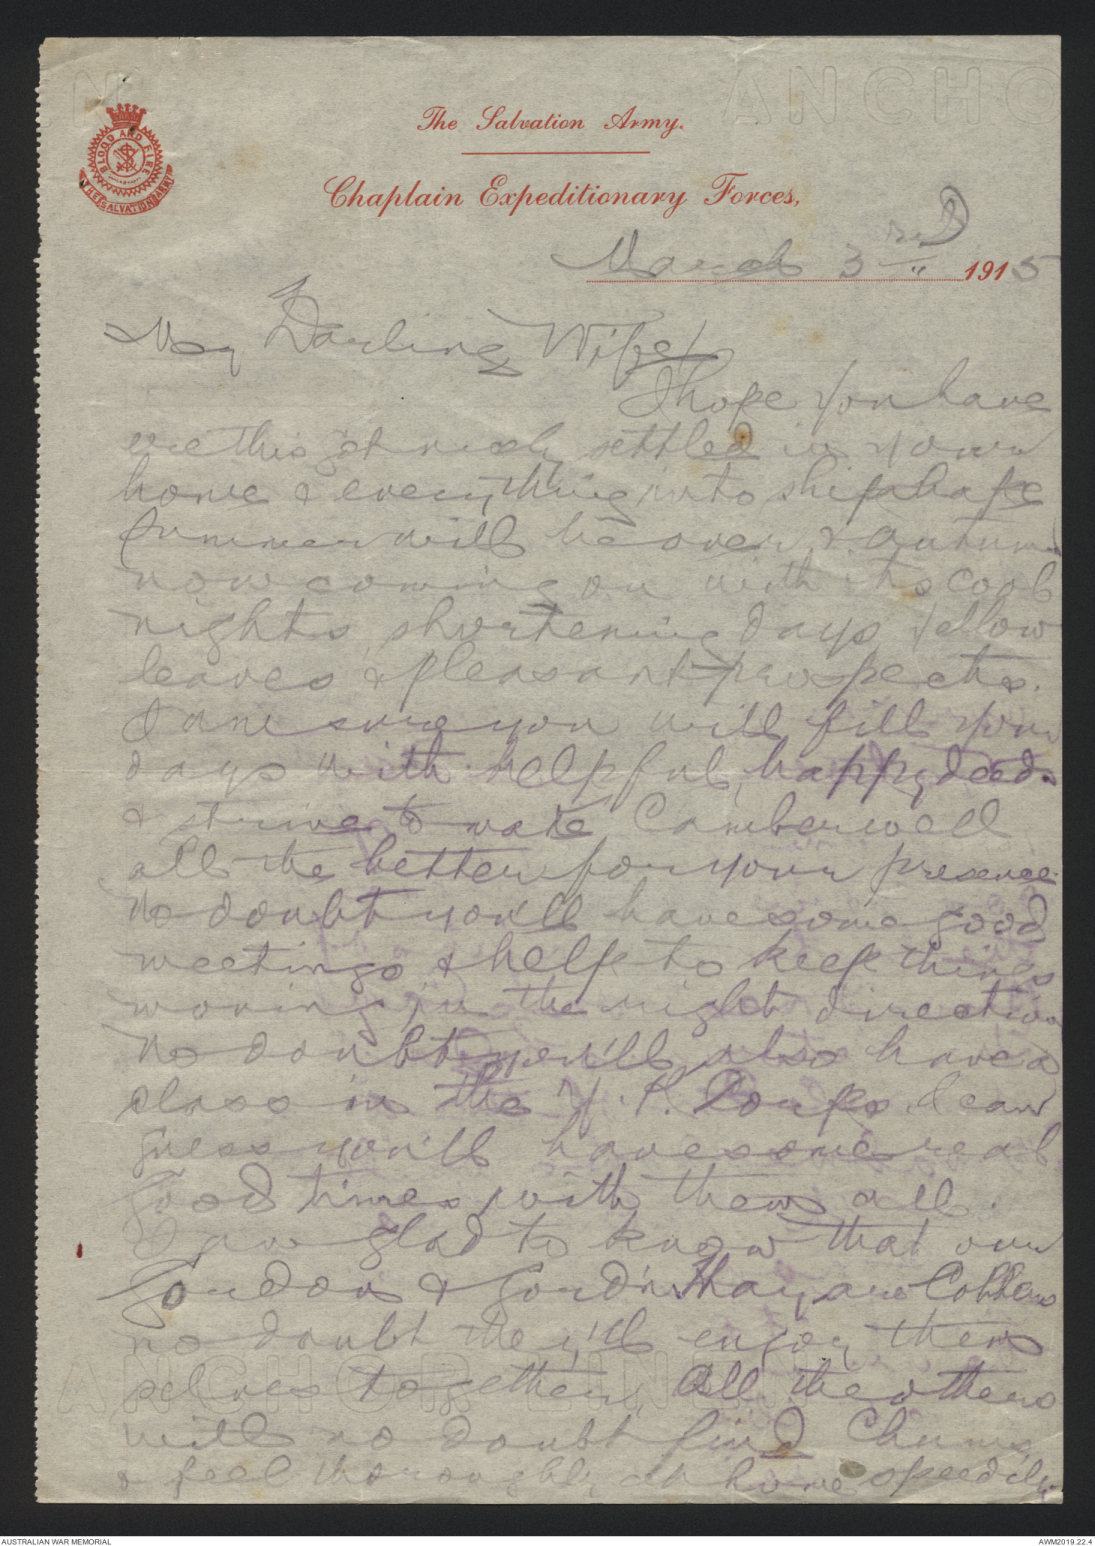 BLOOD AND FIRE
THE SALVATION ARMY
The Salvation Army.
Chaplain Expeditionary Forces,
March 3rd 1915
My Darling Wife
I hope you have
ere this got nicely settled in your
home & everything into shipshape
Summer will be over, & autumn
now coming on with its cool
nights, shortening days yellow
leaves & pleasant prospects.
I am sure you will fill your
days with helpful, happy deeds
& strive to make Camberwell
all the better for your presence
No doubt you'll have some good
meetings & help to keep things
moving in the right direction
No doubt you'll also have a
class in the Y.P. Corps. I can
guess you'll have some real
good times with them all.
I am glad to know that our
Gordon & Gordon are
no doubt they'll enjoy them
selves together, All the others
will no doubt find Chums
& feel thoroughly at home speedily
ANCHOR LINE
ANCHO
AUSTRALIAN WAR MEMORIAL
AWM2019.22.4